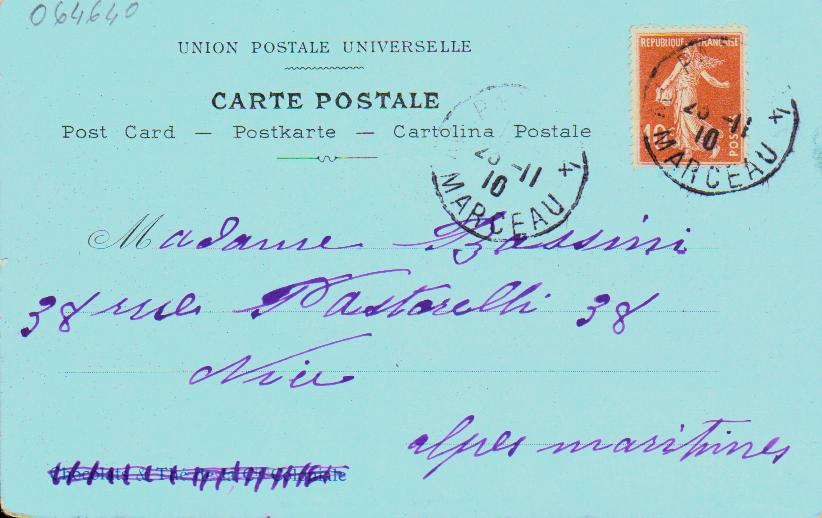 064640
UNION POSTALE UNIVERSELLE
CARTE POSTALE
Post Card — Postkarte — Cartolina Postale
REPUBLIQUE FRANÇAISE
10c POSTES
25 -11
10
MARCEAU
25 -11
10
MARCEAU
Madame Bassini
38 rue Pastorelli 38
Nice
alpes maritimes
Chocolats & Thé de la Cie Coloniale